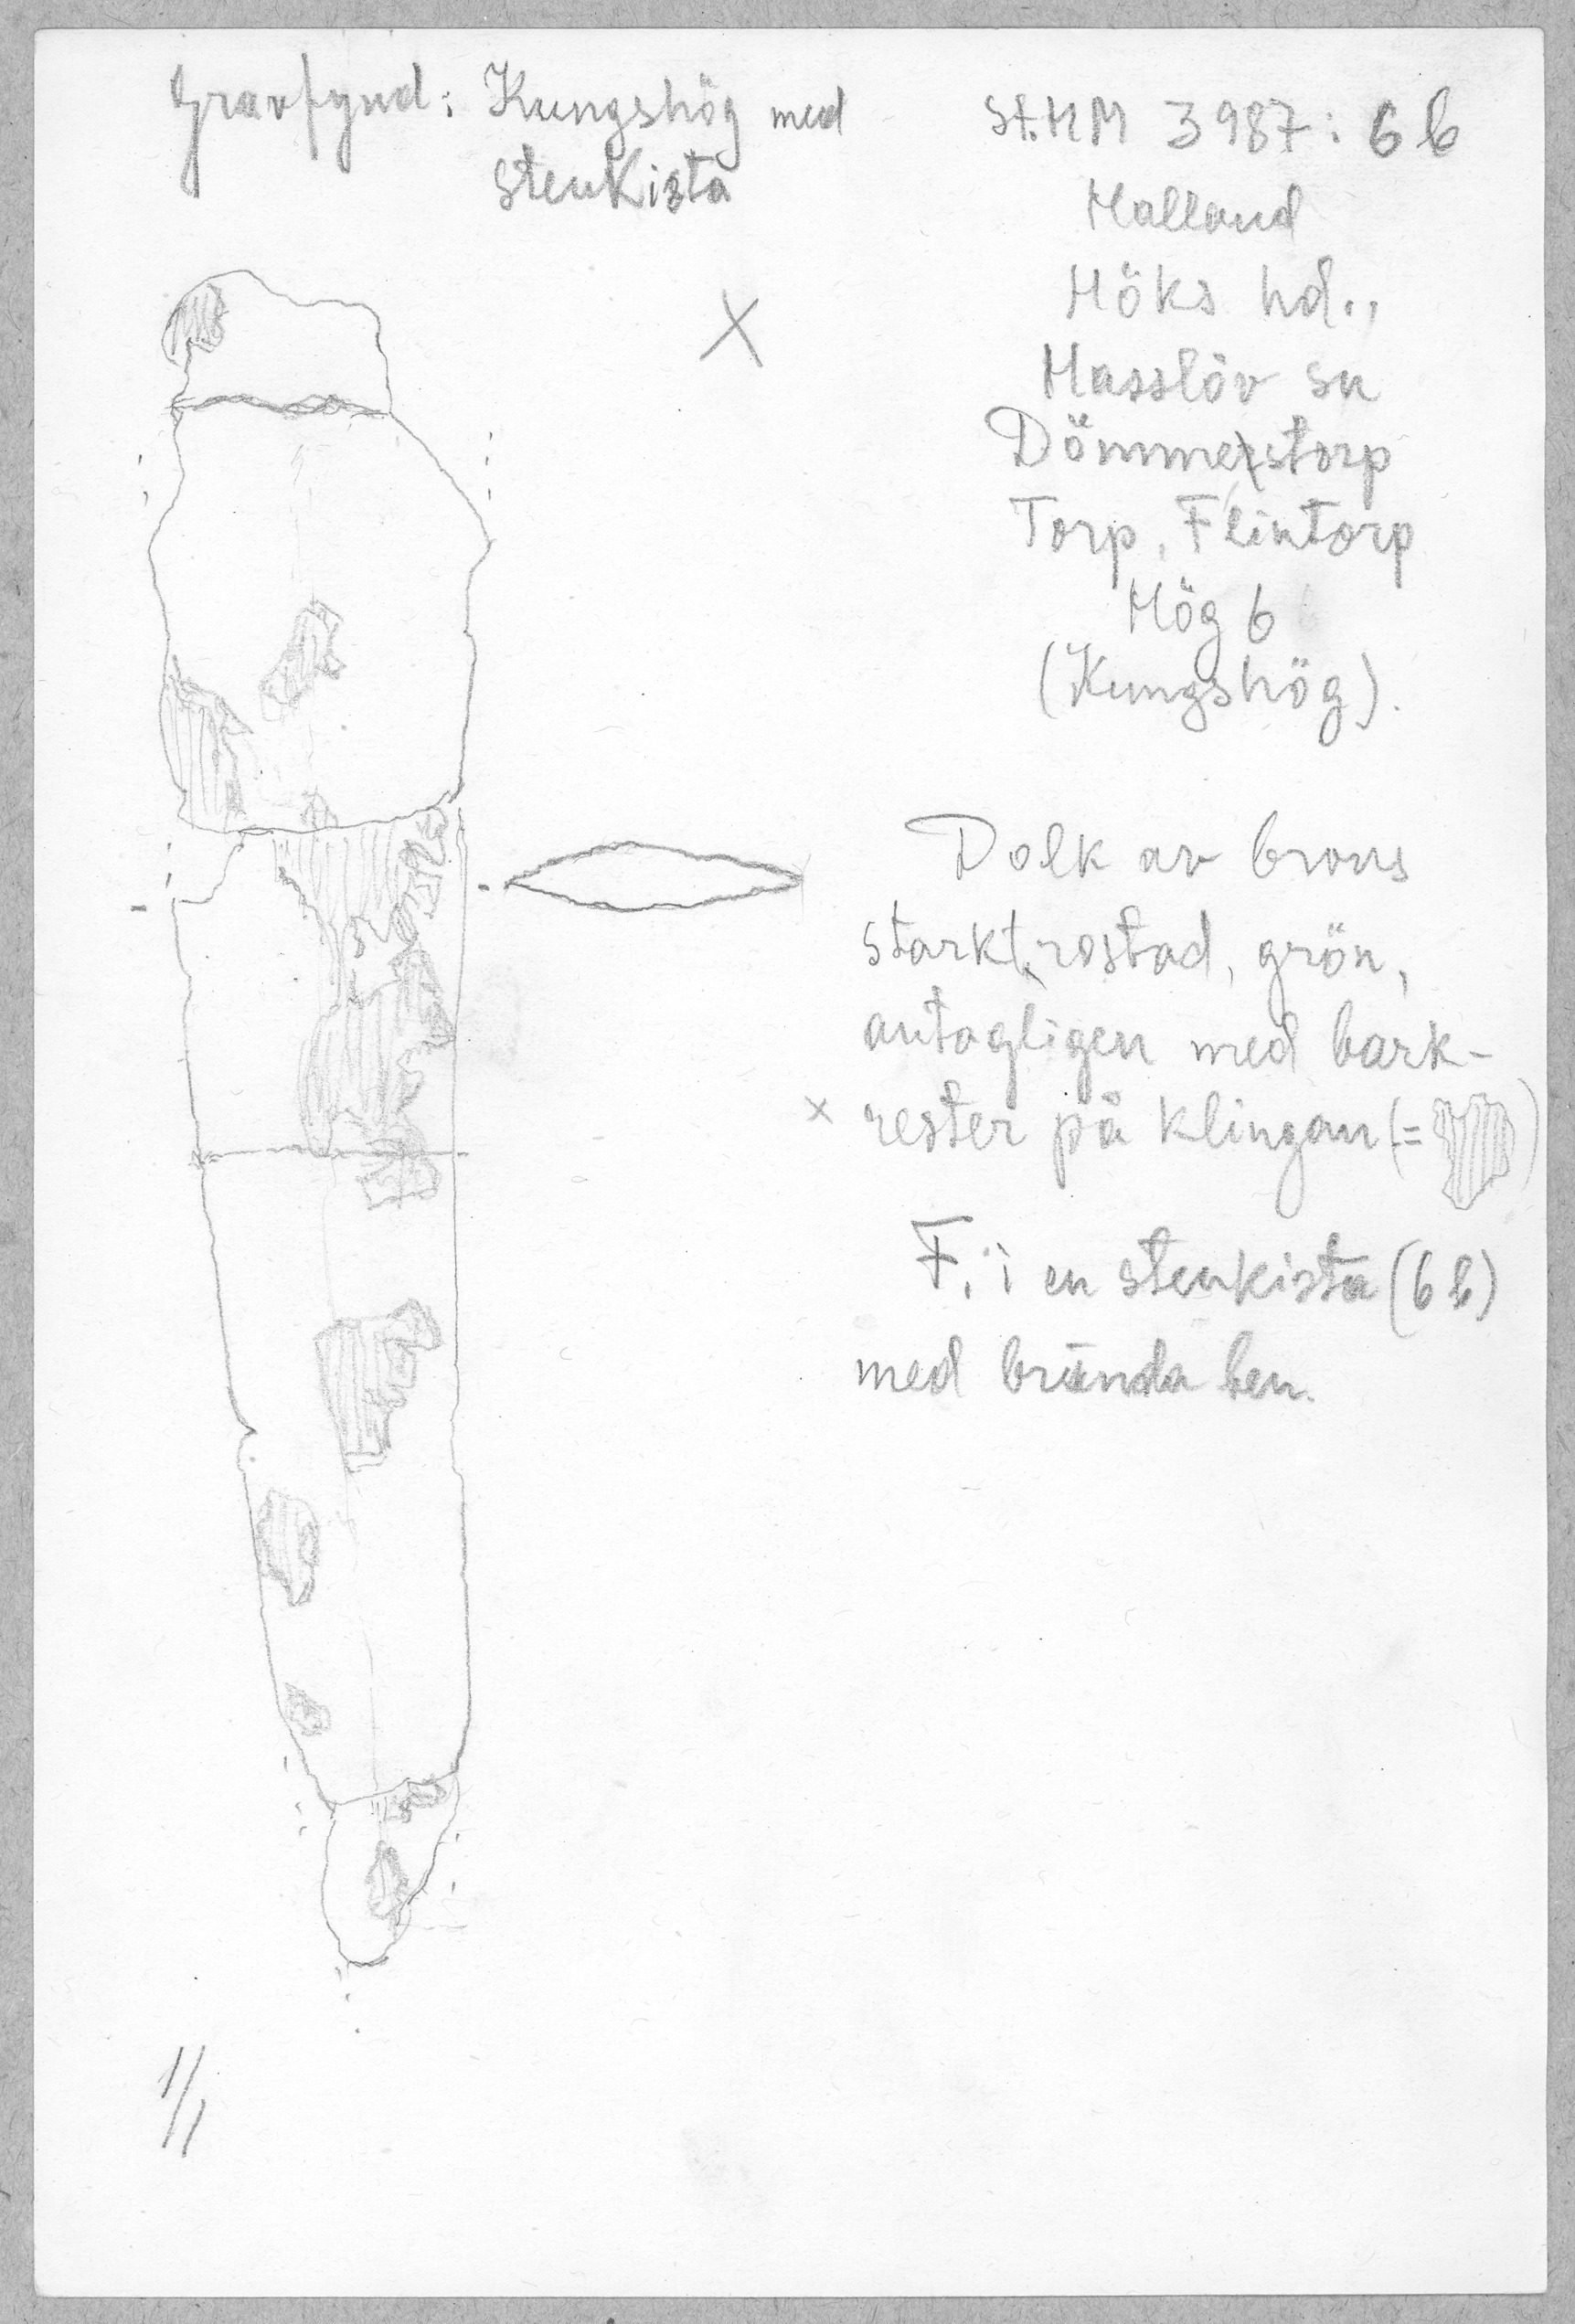 Gravfynd: Kungshög med
stenkista
St.HM 3987: 6b
Halland
Höks hd.,
Hasslöv sn
Dömmestorp
Torp, Flintorp
Hög 6
(Kungshög).
X
Dolk av brons
starkt rostad, grön,
antagligen med bark-
x rester på klingan (= )
F. i en stenkista (6b)
med brända ben.
1/1